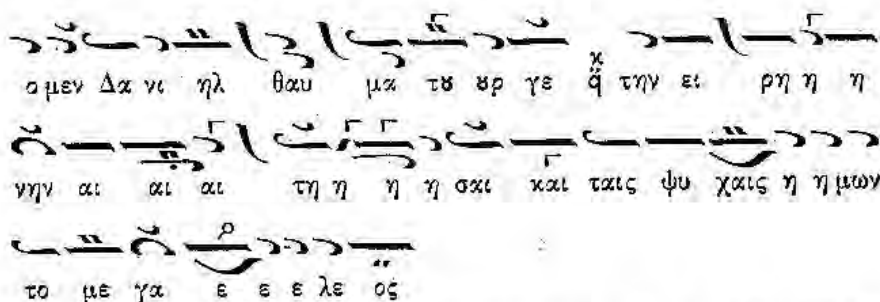 ο μεν Δα νι ηλ θαυ μα τȣ ȣρ γε την ει ρη η η
νην αι αι αι τη η η η σαι και ταις ψυ χαις η η μων
το με γα ε ε ε λε ος